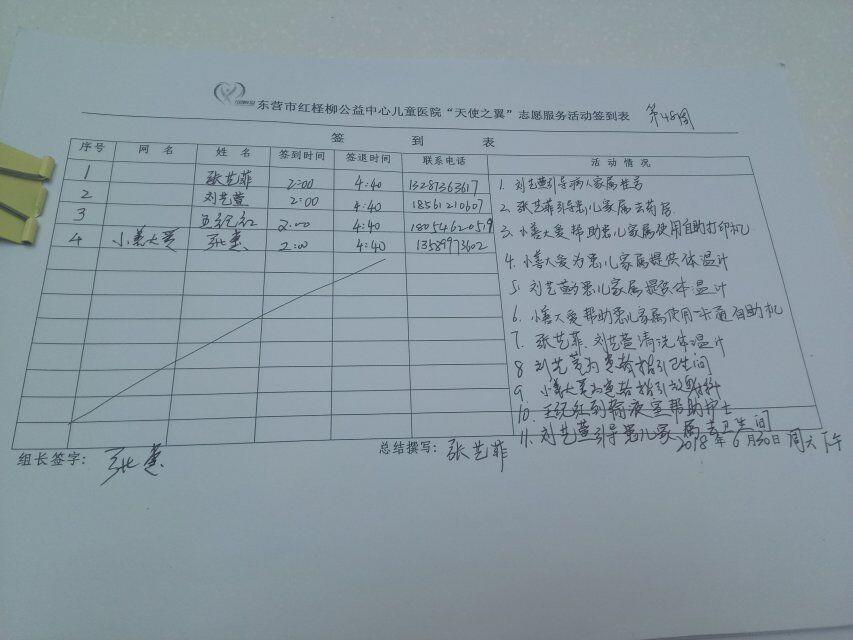 东营市红柽柳公益中心儿童医院“天使之翼”志愿服务活动签到表 第48周
签 到 表
序号 网 名 姓 名 签到时间 签退时间 联系电话 活 动 情 况
1 张艺菲 2:00 4:40 13287363617
2 刘艺萱 2:00 4:40 18561210607
3 王纪红 2:00 4:40 18054620519
4 小善大爱 张慧 2:00 4:40 13589973602
1. 刘艺萱引导病人家属挂号
2. 张艺菲引导患儿家属去药房
3. 小善大爱帮助患儿家属使用自助打印机
4. 小善大爱为患儿家属提供体温计
5. 刘艺萱为患儿家属提供体温计
6. 小善大爱帮助患儿家属使用一卡通自助机
7. 张艺菲、刘艺萱清洗体温计
8 刘艺萱为患者指引卫生间
9. 小善大爱为患者指引放射科
10. 王纪红到输液室帮助护士
11. 刘艺萱引导患儿家属去卫生间
组长签字: 张慧 总结撰写: 张艺菲 2018年6月30日周六下午